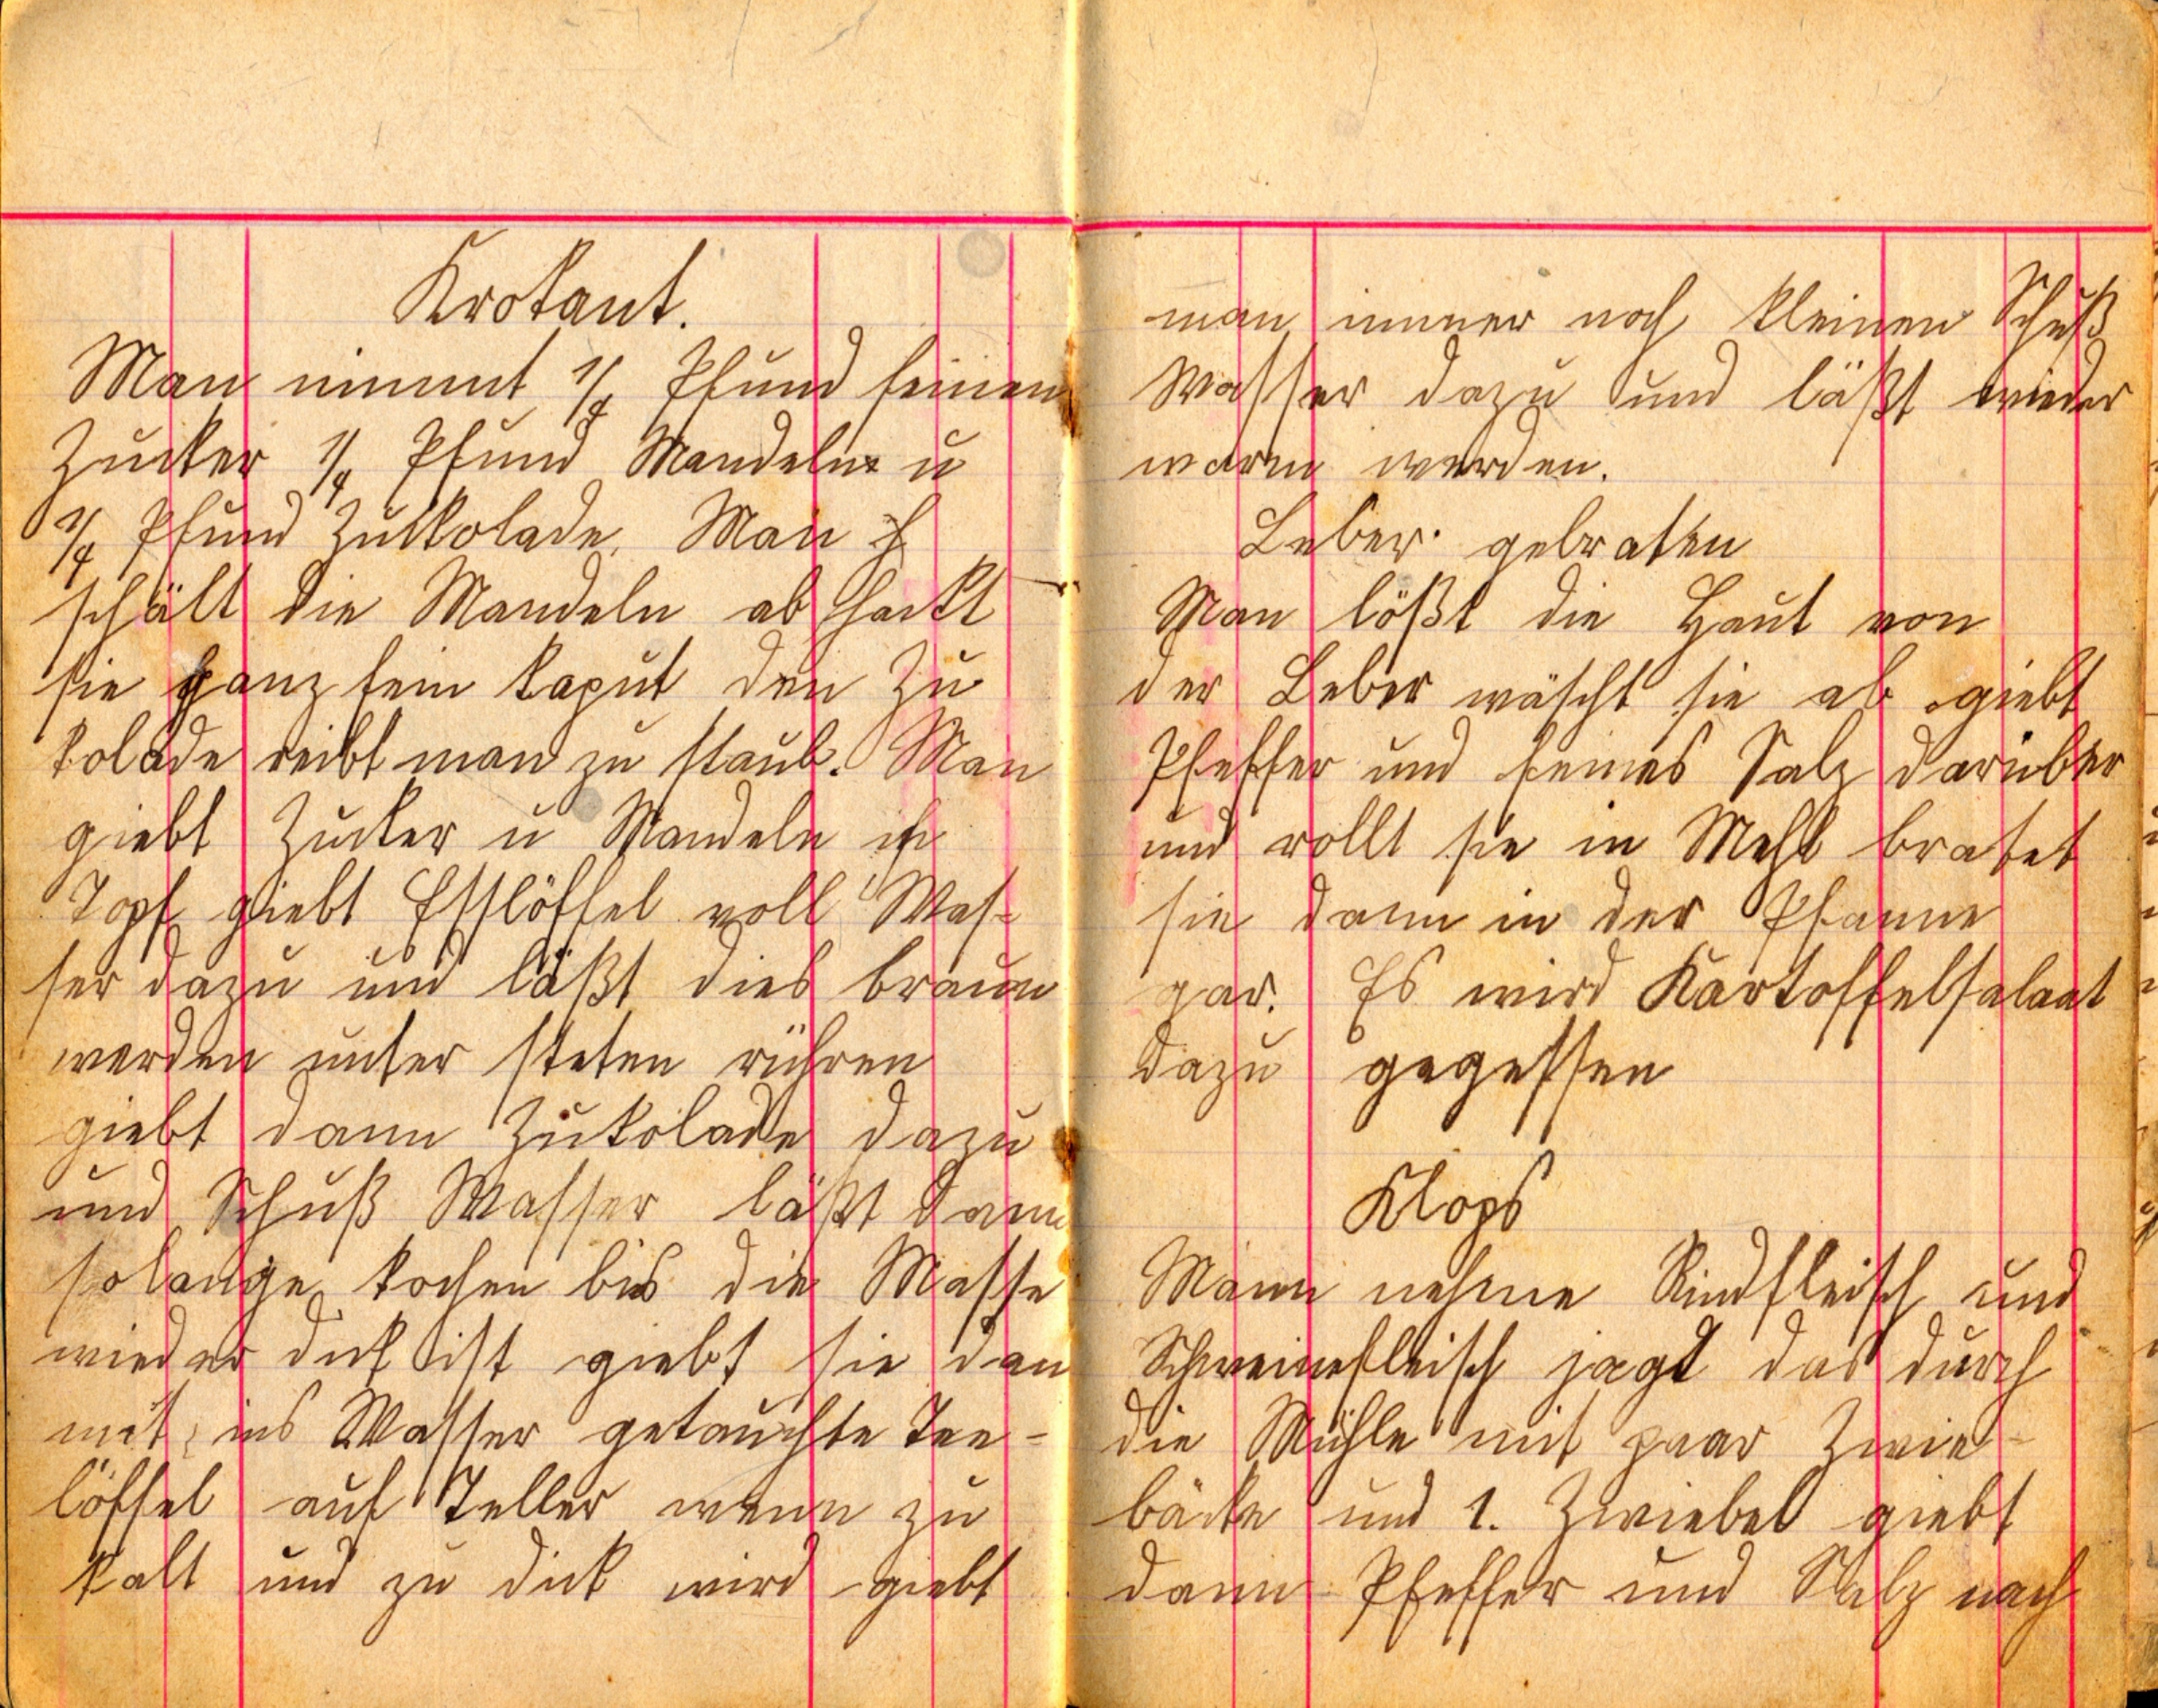 Krokant.
Man nimmt 1/4 Pfund feinen
Zucker 1/4 Pfund Mandeln u
1/4 Pfund Zukkolade. Man
schält die Mandeln ab hackt
sie ganz fein kaput den Zu
kolade reibt man zu staub. Man
giebt Zucker u Mandeln in
Topf giebt Esslöffel voll Was-
ser dazu und läßt dies braun
werden unter steten rühren
giebt dann Zukolade dazu
und Schuß Wasser läßt dann
solange kochen bis die Masse
wieder dick ist giebt sie dan
mit ins Wasser getauchte Tee-
löffel auf Teller wenn zu
kalt und zu dick wird giebt
man immer noch kleinen Schuß
Wasser dazu und läßt wieder
warm werden.
Leber gebraten
Man lößt die Haut von
der Leber wäscht sie ab giebt
Pfeffer und feines Salz darüber
und rollt sie in Mehl bratet
sie dann in der Pfanne
gar. Es wird Kartoffelsalaat
dazu gegessen
Klops
Mann nehme Rindfleisch und
Schweinefleisch jagt das durch
die Mühle mit paar Zwie-
bäcke und 1. Zwiebel giebt
dann Pfeffer und Salz nach